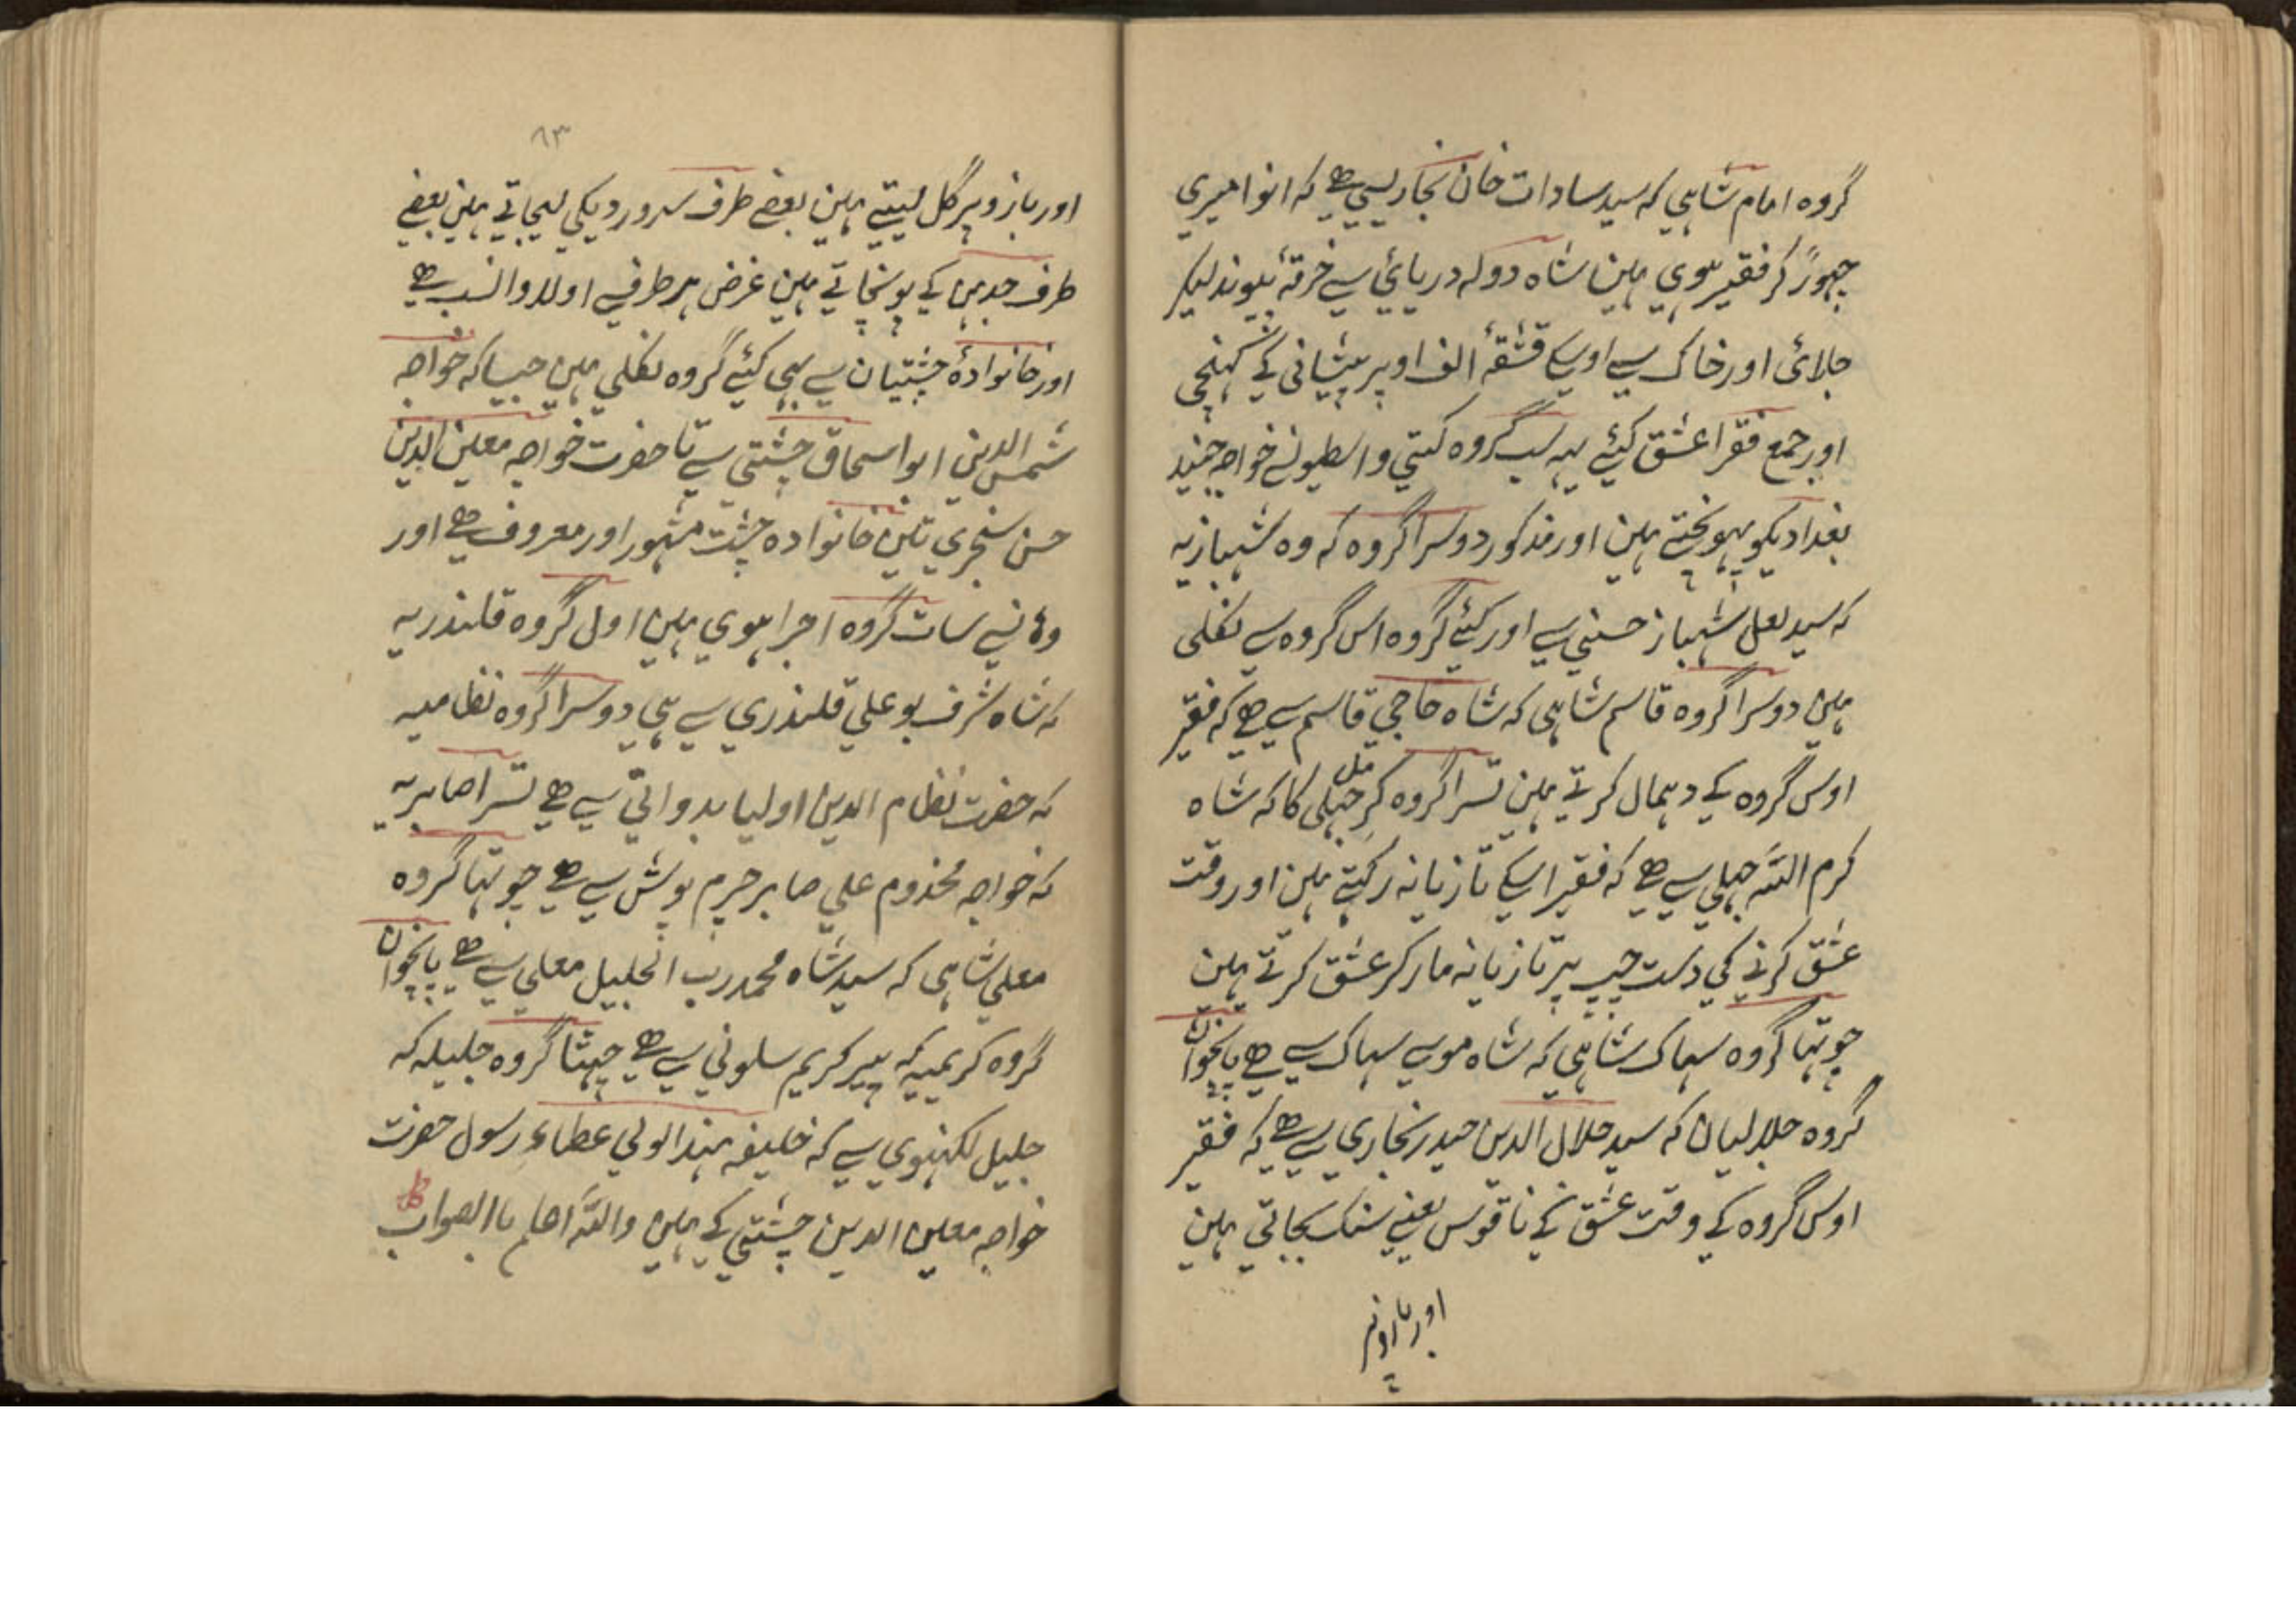 گروه امام شاہي که سید سادات خان بخاریسي هے که انوا میري
چهوڑ کر فقیر ہوي ہین شاه دوله دریائي سے خرقهٔ پیوند لیکر
جلائ اور خاک سے اوسکے قشقهٔ الف اوپر پیشانی کے کهنچي
اور جمع فقرا عشق کیئے یہہ سب گروه کتني واسطیونسے خواجه جنید
بغدادیکو پہونچتے ہین اور مذکور دوسرا گروه که وه شہبازیه
که سید لعل شہباز حسني سے اور کیئے گروه اس گروه سے نکلی
ہین دوسرا گروه قاسم شاہی که شاه حاجي قاسم سے هے که فقیر
اوس گروه کے دہمال کرتے ہین تسرا گروه کرم جہلي کا که شاه
کرم اللّه جہلي سے هے که فقیر اسکے تازیانه رکہتے ہین اور وقت
عشق کرنے کي دست چپ پر تازیانه مار کر عشق کرتے ہین
چوتہا گروه سہاک شاہي که شاه موسے سہاک سے هے پانچوان
گروه جلالیان که سید جلال الدین حیدر بخاري سے هے که فقیر
اوس گروه کے وقت عشق کے ناقوس یعنے سنک بجاتي ہین
اور بازوپر
٦٣
اور بازو پر گل لیتے ہین بعضے طرف سہروردیکي لیجاتے ہین بعضے
طرف جدہن کے پونچاتے ہین غرض ہر طرف سے اولاد والنسب هے
اور خانوادهٔ چشتیان سے بهي کیئے گروه نکلي ہین جیسا که خواجه
شمس الدین ابو اسحاق چشتي سے تا حضرت خواجه معین الدین
حسن سنجري تین خانواده چشت مشہور اور معروف هے اور
وهانسے سات گروه اجرا ہوي ہین اول گروه قلندریه
که شاه شرف بو علي قلندري سے ہي دوسرا گروه نظامیه
که حضرت نظام الدین اولیا بدواني سے هے تسرا صابریه
که خواجه مخذوم علي صابر چرم پوش سے هے چوتہا گروه
معلي شاہی که سید شاه محمد رب الجلیل معلي سے هے پانچوان
گروه کریمیه که پیر کریم سلوني سے هے چہٹا گروه جلیله که
جلیل لکہنوي سے که خلیفه ہند الولي عطاء رسول حضرت
خواجه معین الدین چشتي کے ہین واللّه اعلم باالصواب